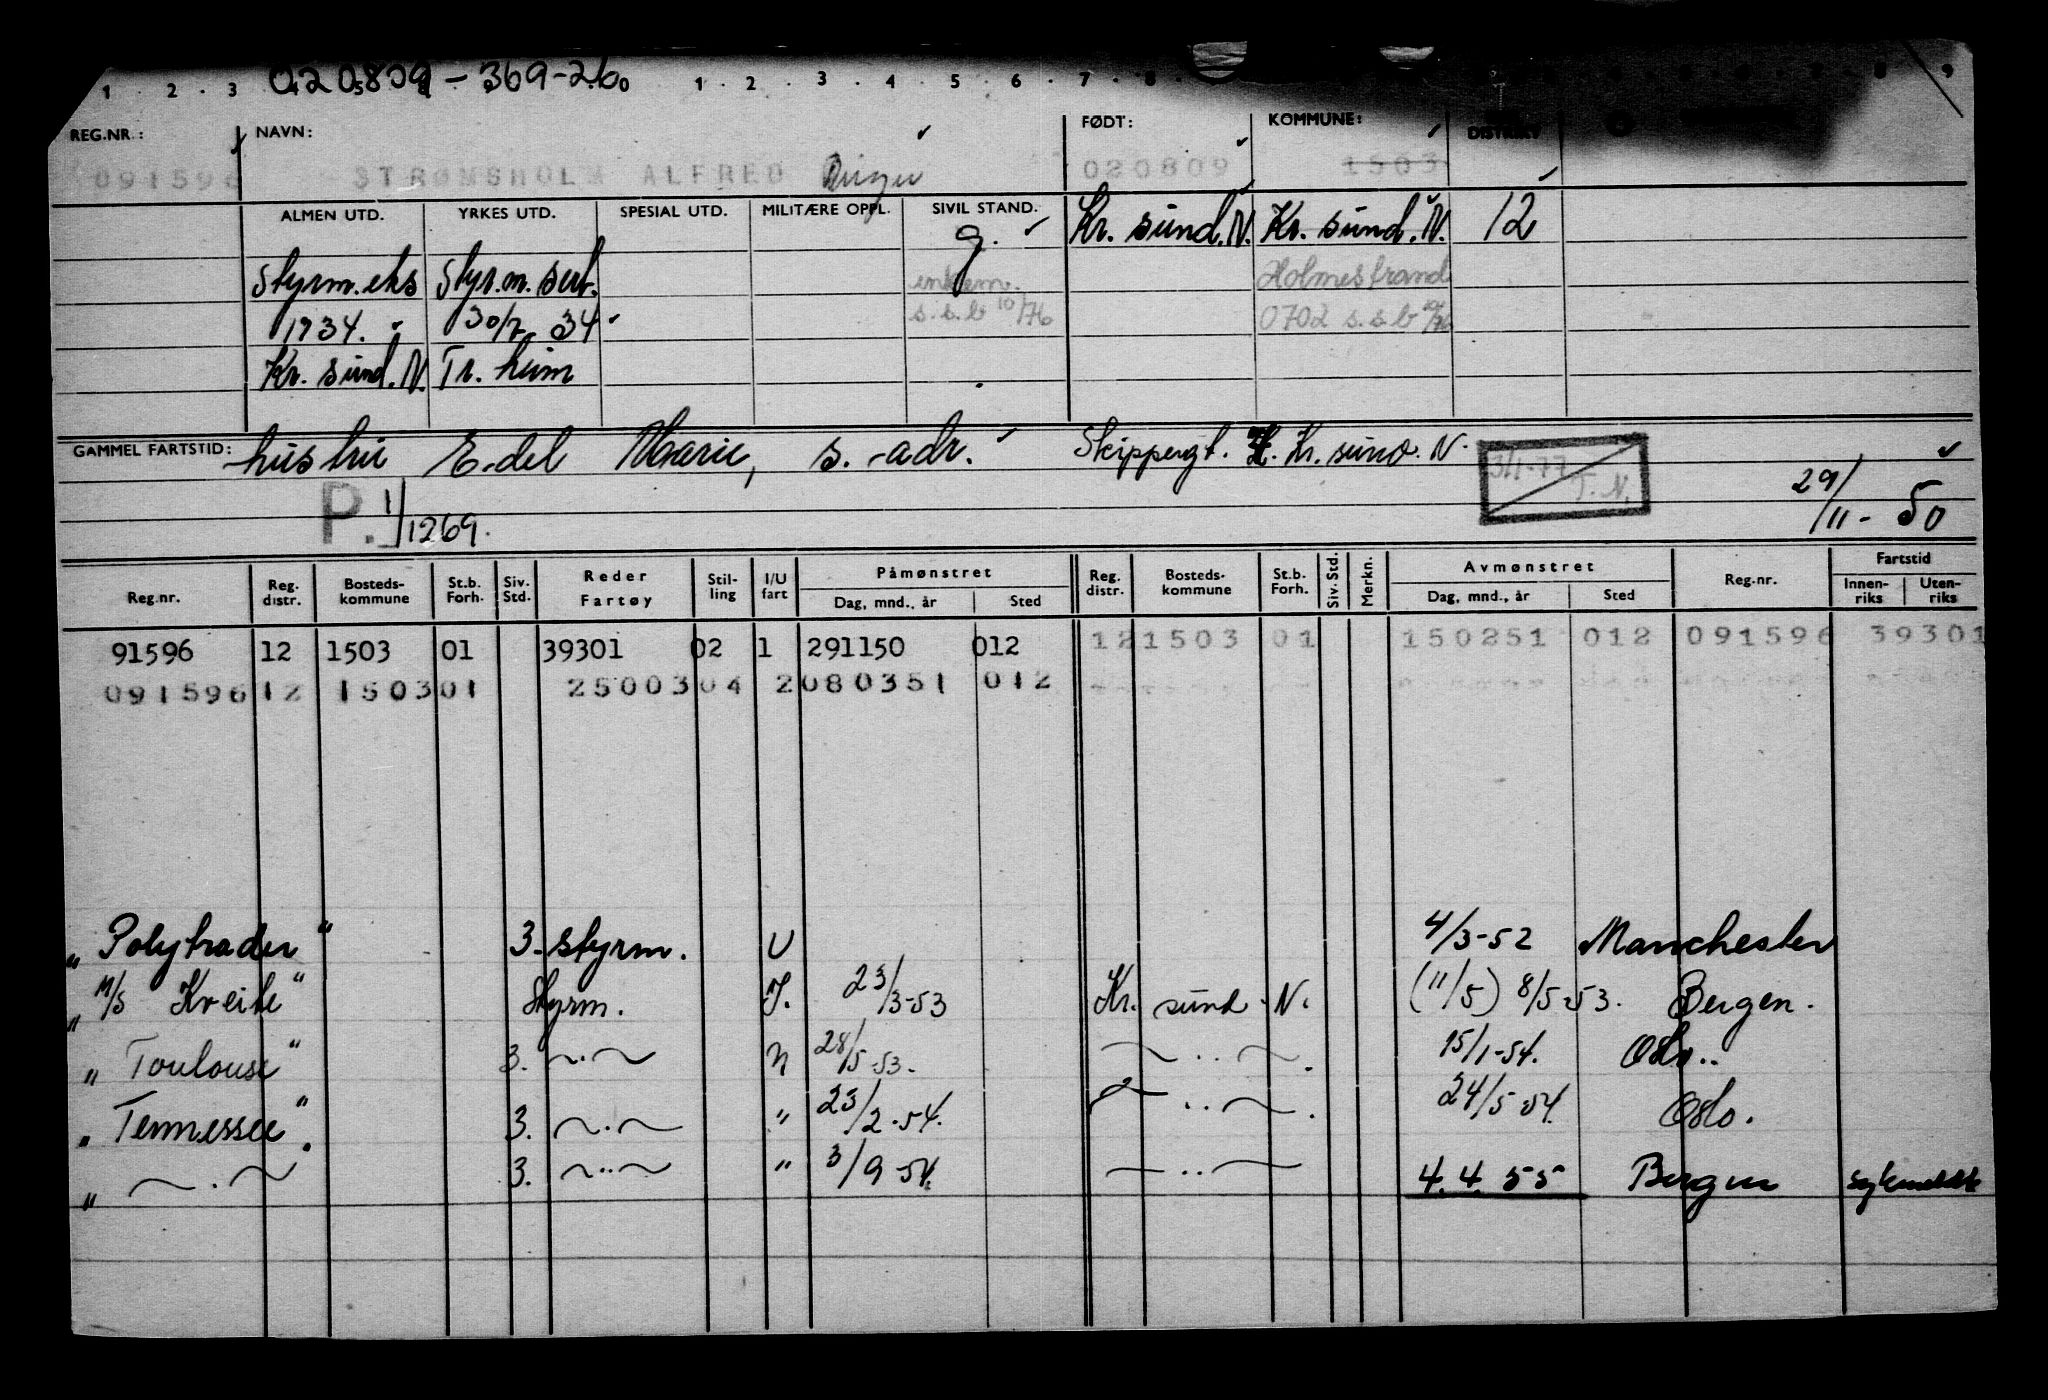 020809-369-26
1 . 2 . 3 0 1 . 2 . 3 . 4 . 5 . 6 . 7 . 8
REG.NR.: NAVN: FØDT: KOMMUNE: DISTRIKT
091596 STRØMSHOLM ALFRED Birger 020809 1503
ALMEN UTD. YRKES UTD. SPESIAL UTD. MILITÆRE OPPL. SIVIL STAND.
g. Kr. sund. N. Kr. sund. N. 12
Styrm. eks Styr.m. sert. enkem. Holmestrand
1934. 30/7 34 s.s.b 10/76 0702 s.s.b 10/76
Kr. sund. N. Tr. heim
GAMMEL FARTSTID: hustru Edel Marie, s. -adr. Skippergt. Kr. sund. N.
3/1-77 T. N. 29/11 - 50
P. 1/1269.
Reg.nr. Reg. distr. Bosteds-kommune St.b. Forh. Siv. Std. Reder Fartøy Stil-ling I/U fart Påmønstret Dag, mnd., år Sted Reg. distr. Bosteds-kommune St.b. Forh. Siv. Std. Merkn. Avmønstret Dag, mnd., år Sted Reg.nr. Fartstid Innen-riks Uten-riks
91596 12 1503 01 39301 02 1 291150 012 12 1503 01 150251 012 091596 39301
091596 12 1503 01 25003 04 2 080351 012
„ Polytrader " 3. styrm. U 4/3-52 Manchester
„ M/S Kreite " Styrm. I. 23/3-53 Kr. sund - N. (11/5) 8/5-53. Bergen.
„ Toulouse " 3. ~·~ U 28/5-53. ~··~. 15/1-54. Oslo..
„ Tennessee ". 3. ~·~ " 23/2-54. ~··~. 24/5-54. Oslo.
„ ~·~ 3. ~··~ " 3/9-54. ~··~ 4.4.55 Bergen sykmeldt